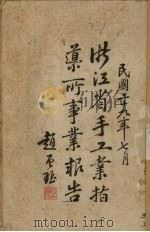 民國廿九年七月
浙江省手工業指
導所事業報告